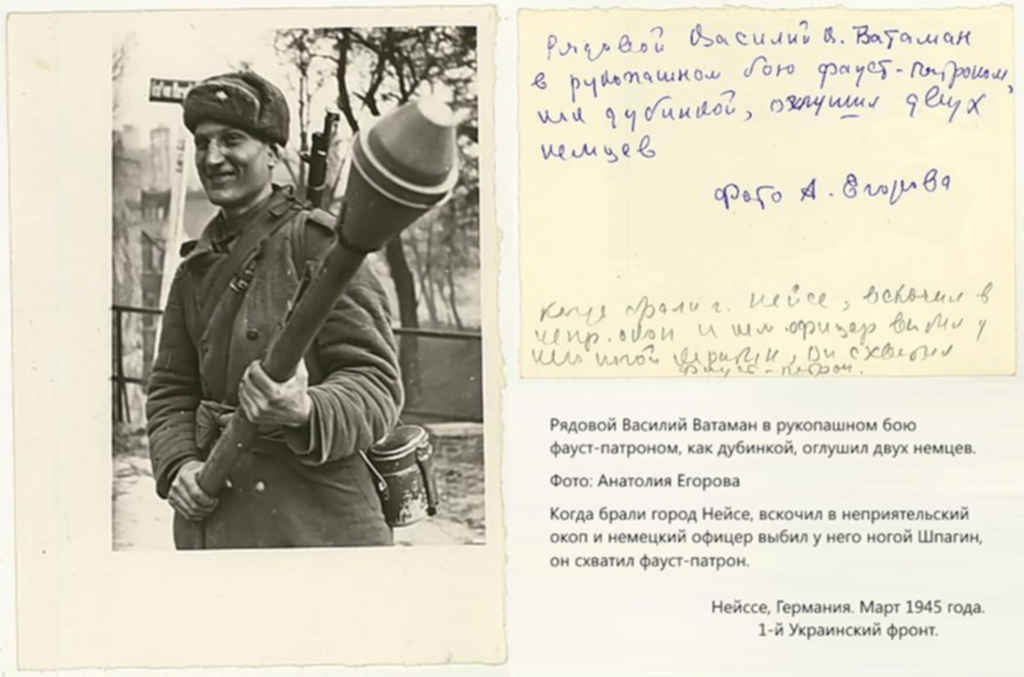 Рядовой Василий В. Ватаман
в рукопашном бою фауст-патроном,
как дубинкой, оглушил двух
немцев
Фото А. Егорова
Когда брали г. Нейсе, вскочил в
непр. окоп и нем. офицер выбил у
него ногой , он схватил
фауст-патрон.
Рядовой Василий Ватаман в рукопашном бою
фауст-патроном, как дубинкой, оглушил двух немцев.
Фото: Анатолия Егорова
Когда брали город Нейсе, вскочил в неприятельский
окоп и немецкий офицер выбил у него ногой Шпагин,
он схватил фауст-патрон.
Нейссе, Германия. Март 1945 года.
1-й Украинский фронт.